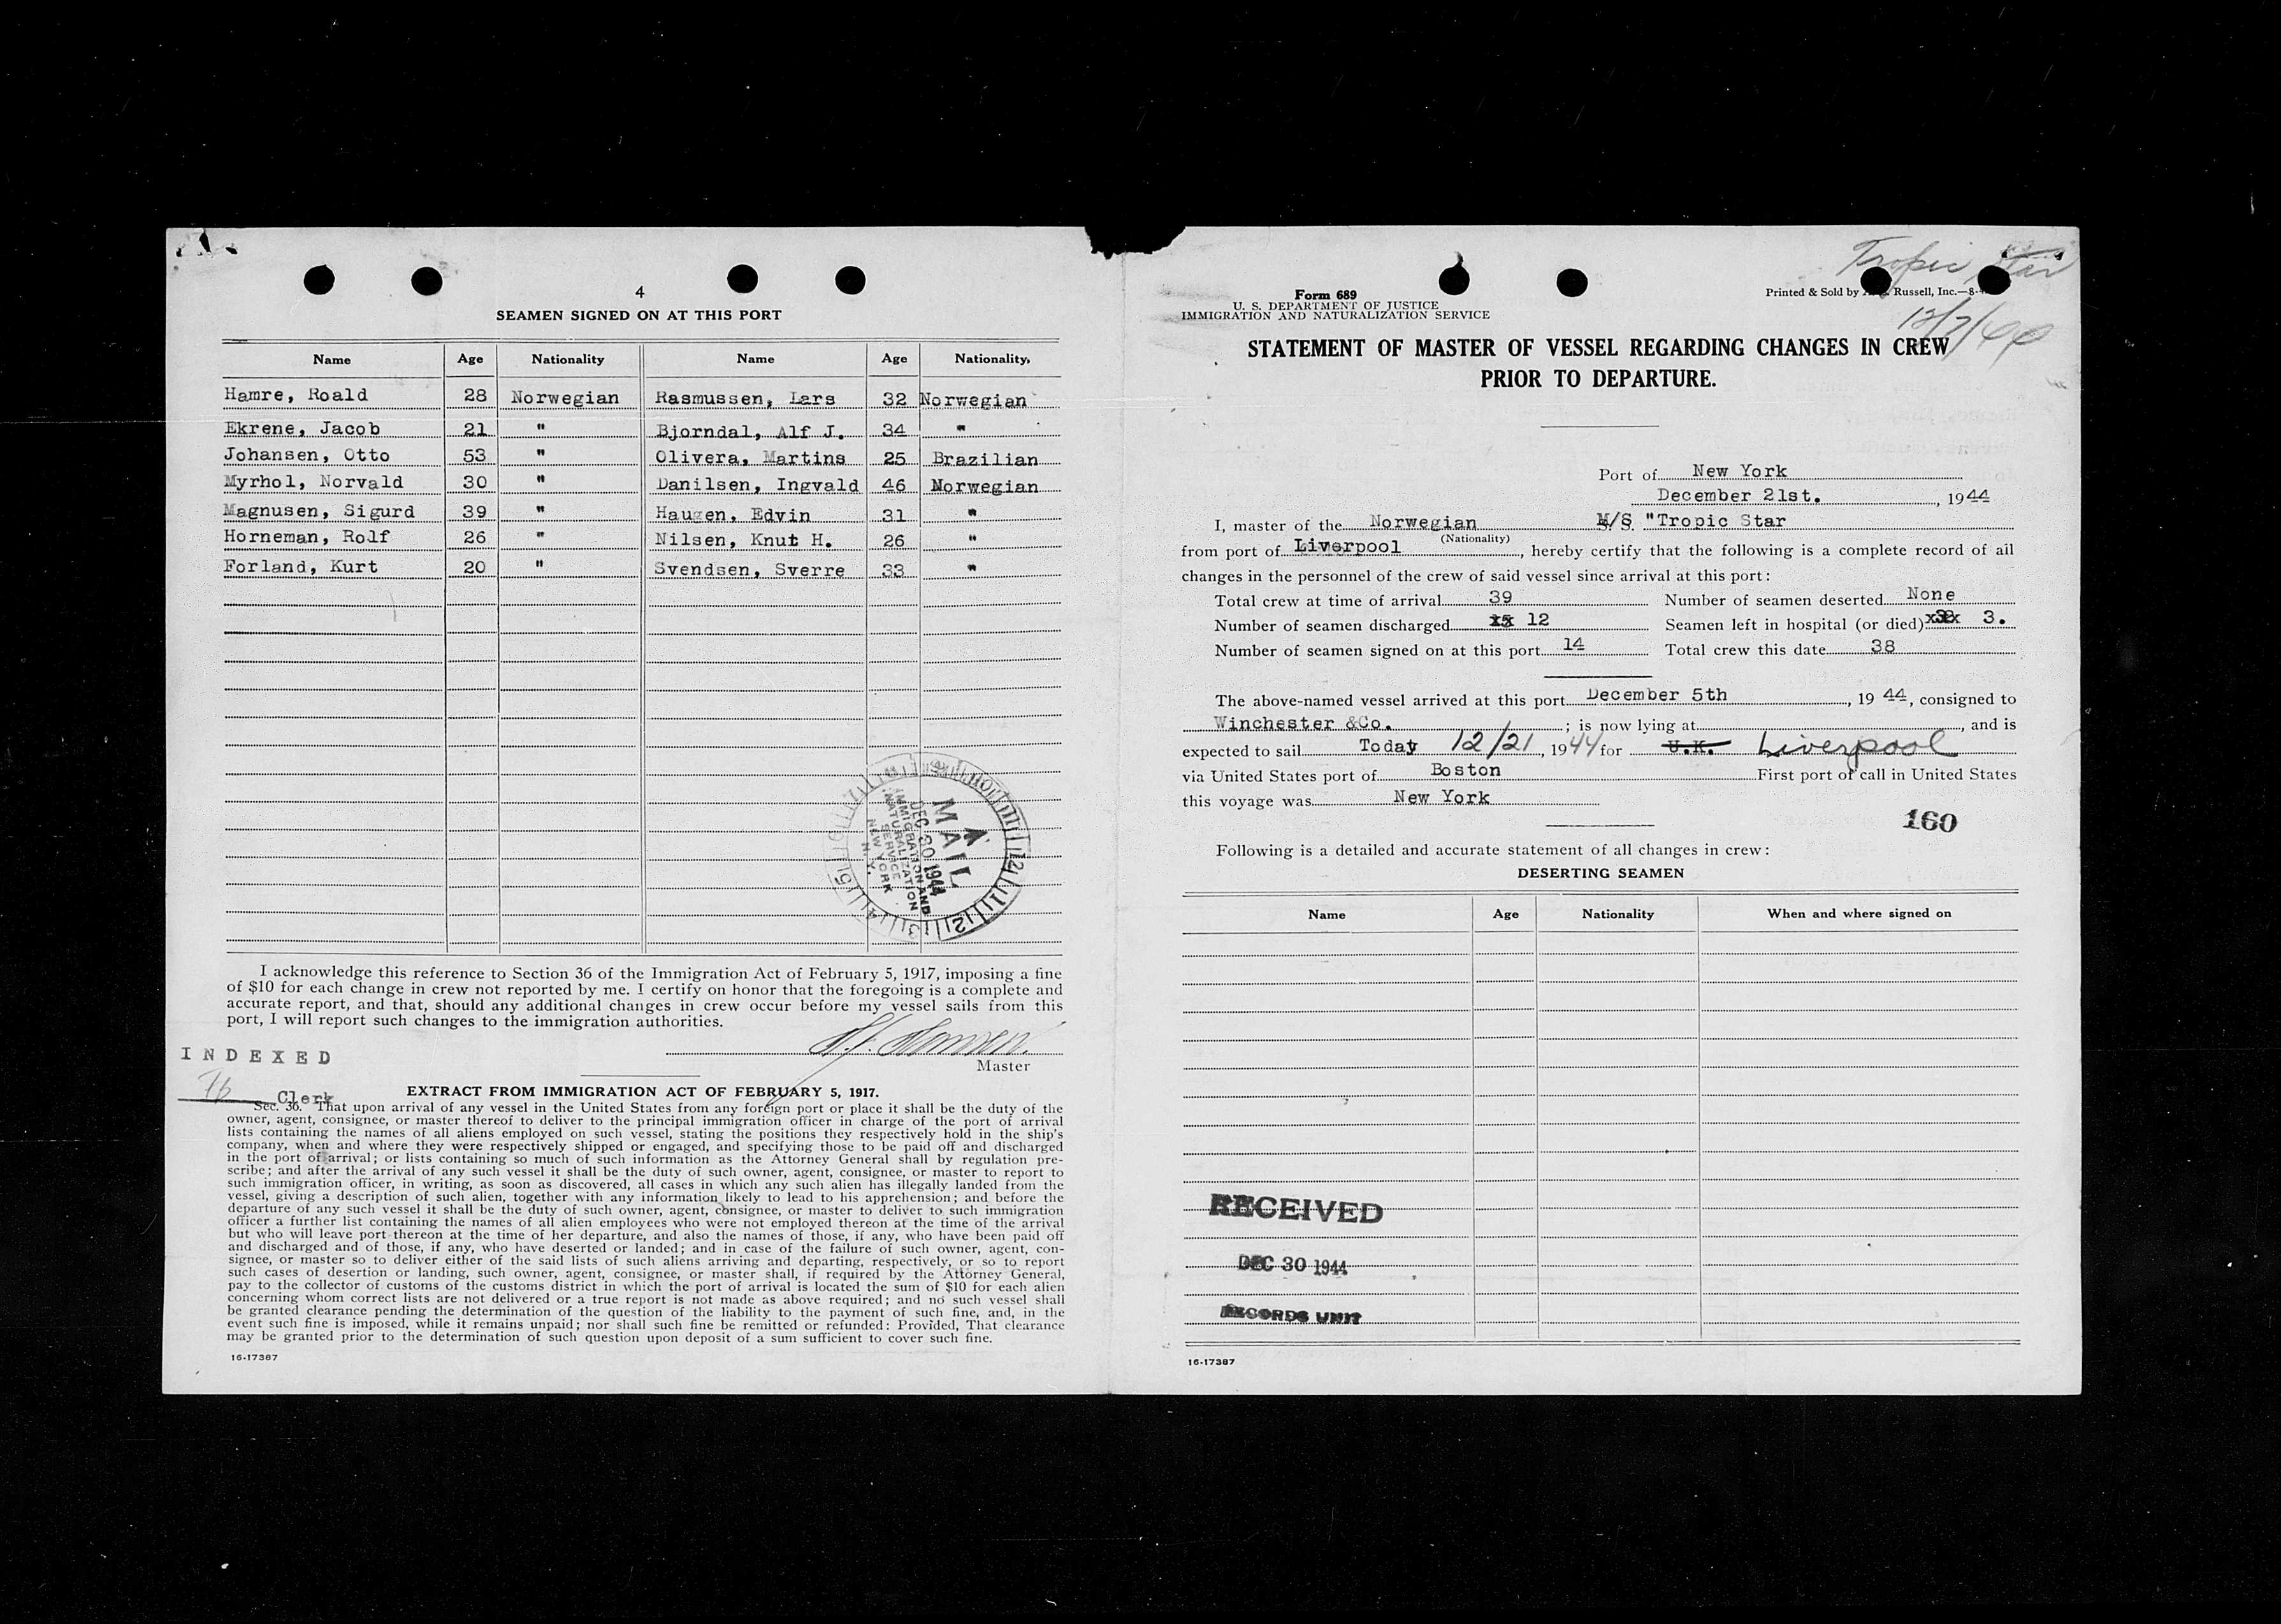 4
SEAMEN SIGNED ON AT THIS PORT
Name Age Nationality Name Age Nationality
Hamre, Roald 28 Norwegian Rasmussen, Lars 32 Norwegian
Ekrene, Jacob 21 " Bjorndal, Alf J. 34 "
Johansen, Otto 53 " Olivera, Martins 25 Brazilian
Myrhol, Norvald 30 " Danilsen, Ingvald 46 Norwegian
Magnusen, Sigurd 39 " Haugen, Edvin 31 "
Horneman, Rolf 26 " Nilsen, Knut H. 26 "
Forland, Kurt 20 " Svendsen, Sverre 33 "
MAIL
DEC 30 1944
IMMIGRATION AND
NATURALIZATION
SERVICE
NEW YORK
N. Y.
I acknowledge this reference to Section 36 of the Immigration Act of February 5, 1917, imposing a fine
of $10 for each change in crew not reported by me. I certify on honor that the foregoing is a complete and
accurate report, and that, should any additional changes in crew occur before my vessel sails from this
port, I will report such changes to the immigration authorities.
INDEXED
Master
Clerk
EXTRACT FROM IMMIGRATION ACT OF FEBRUARY 5, 1917.
Sec. 36. That upon arrival of any vessel in the United States from any foreign port or place it shall be the duty of the
owner, agent, consignee, or master thereof to deliver to the principal immigration officer in charge of the port of arrival
lists containing the names of all aliens employed on such vessel, stating the positions they respectively hold in the ship's
company, when and where they were respectively shipped or engaged, and specifying those to be paid off and discharged
in the port of arrival; or lists containing so much of such information as the Attorney General shall by regulation pre-
scribe; and after the arrival of any such vessel it shall be the duty of such owner, agent, consignee, or master to report to
such immigration officer, in writing, as soon as discovered, all cases in which any such alien has illegally landed from the
vessel, giving a description of such alien, together with any information likely to lead to his apprehension; and before the
departure of any such vessel it shall be the duty of such owner, agent, consignee, or master to deliver to such immigration
officer a further list containing the names of all alien employees who were not employed thereon at the time of the arrival
but who will leave port thereon at the time of her departure, and also the names of those, if any, who have been paid off
and discharged and of those, if any, who have deserted or landed; and in case of the failure of such owner, agent, con-
signee, or master so to deliver either of the said lists of such aliens arriving and departing, respectively, or so to report
such cases of desertion or landing, such owner, agent, consignee, or master shall, if required by the Attorney General,
pay to the collector of customs of the customs district in which the port of arrival is located the sum of $10 for each alien
concerning whom correct lists are not delivered or a true report is not made as above required; and no such vessel shall
be granted clearance pending the determination of the question of the liability to the payment of such fine, and, in the
event such fine is imposed, while it remains unpaid; nor shall such fine be remitted or refunded: Provided, That clearance
may be granted prior to the determination of such question upon deposit of a sum sufficient to cover such fine.
16-17387
Tropic Star
Form 689
U. S. DEPARTMENT OF JUSTICE
IMMIGRATION AND NATURALIZATION SERVICE
Printed & Sold by Russell, Inc.—8-
STATEMENT OF MASTER OF VESSEL REGARDING CHANGES IN CREW
PRIOR TO DEPARTURE.
Port of New York
December 21st., 1944
I, master of the Norwegian M/S "Tropic Star
(Nationality)
from port of Liverpool, hereby certify that the following is a complete record of all
changes in the personnel of the crew of said vessel since arrival at this port:
Total crew at time of arrival 39 Number of seamen deserted None
Number of seamen discharged 12 Seamen left in hospital (or died) 3.
Number of seamen signed on at this port 14 Total crew this date 38
The above-named vessel arrived at this port December 5th, 1944, consigned to
Winchester &Co.; is now lying at, and is
expected to sail Today 12/21, 1944 for U.K. Liverpool
via United States port of Boston First port of call in United States
this voyage was New York
160
Following is a detailed and accurate statement of all changes in crew:
DESERTING SEAMEN
Name Age Nationality When and where signed on
RECEIVED
DEC 30 1944
RECORDS UNIT
16-17387